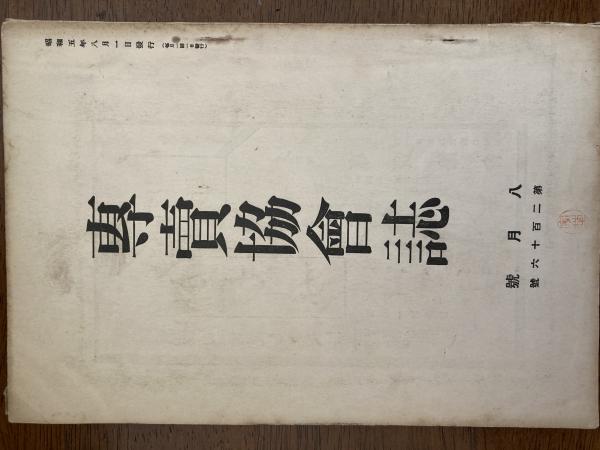 昭和五年八月一日發行(毎月一回一日發行)
專賣協會誌
八月號
第二百十六號